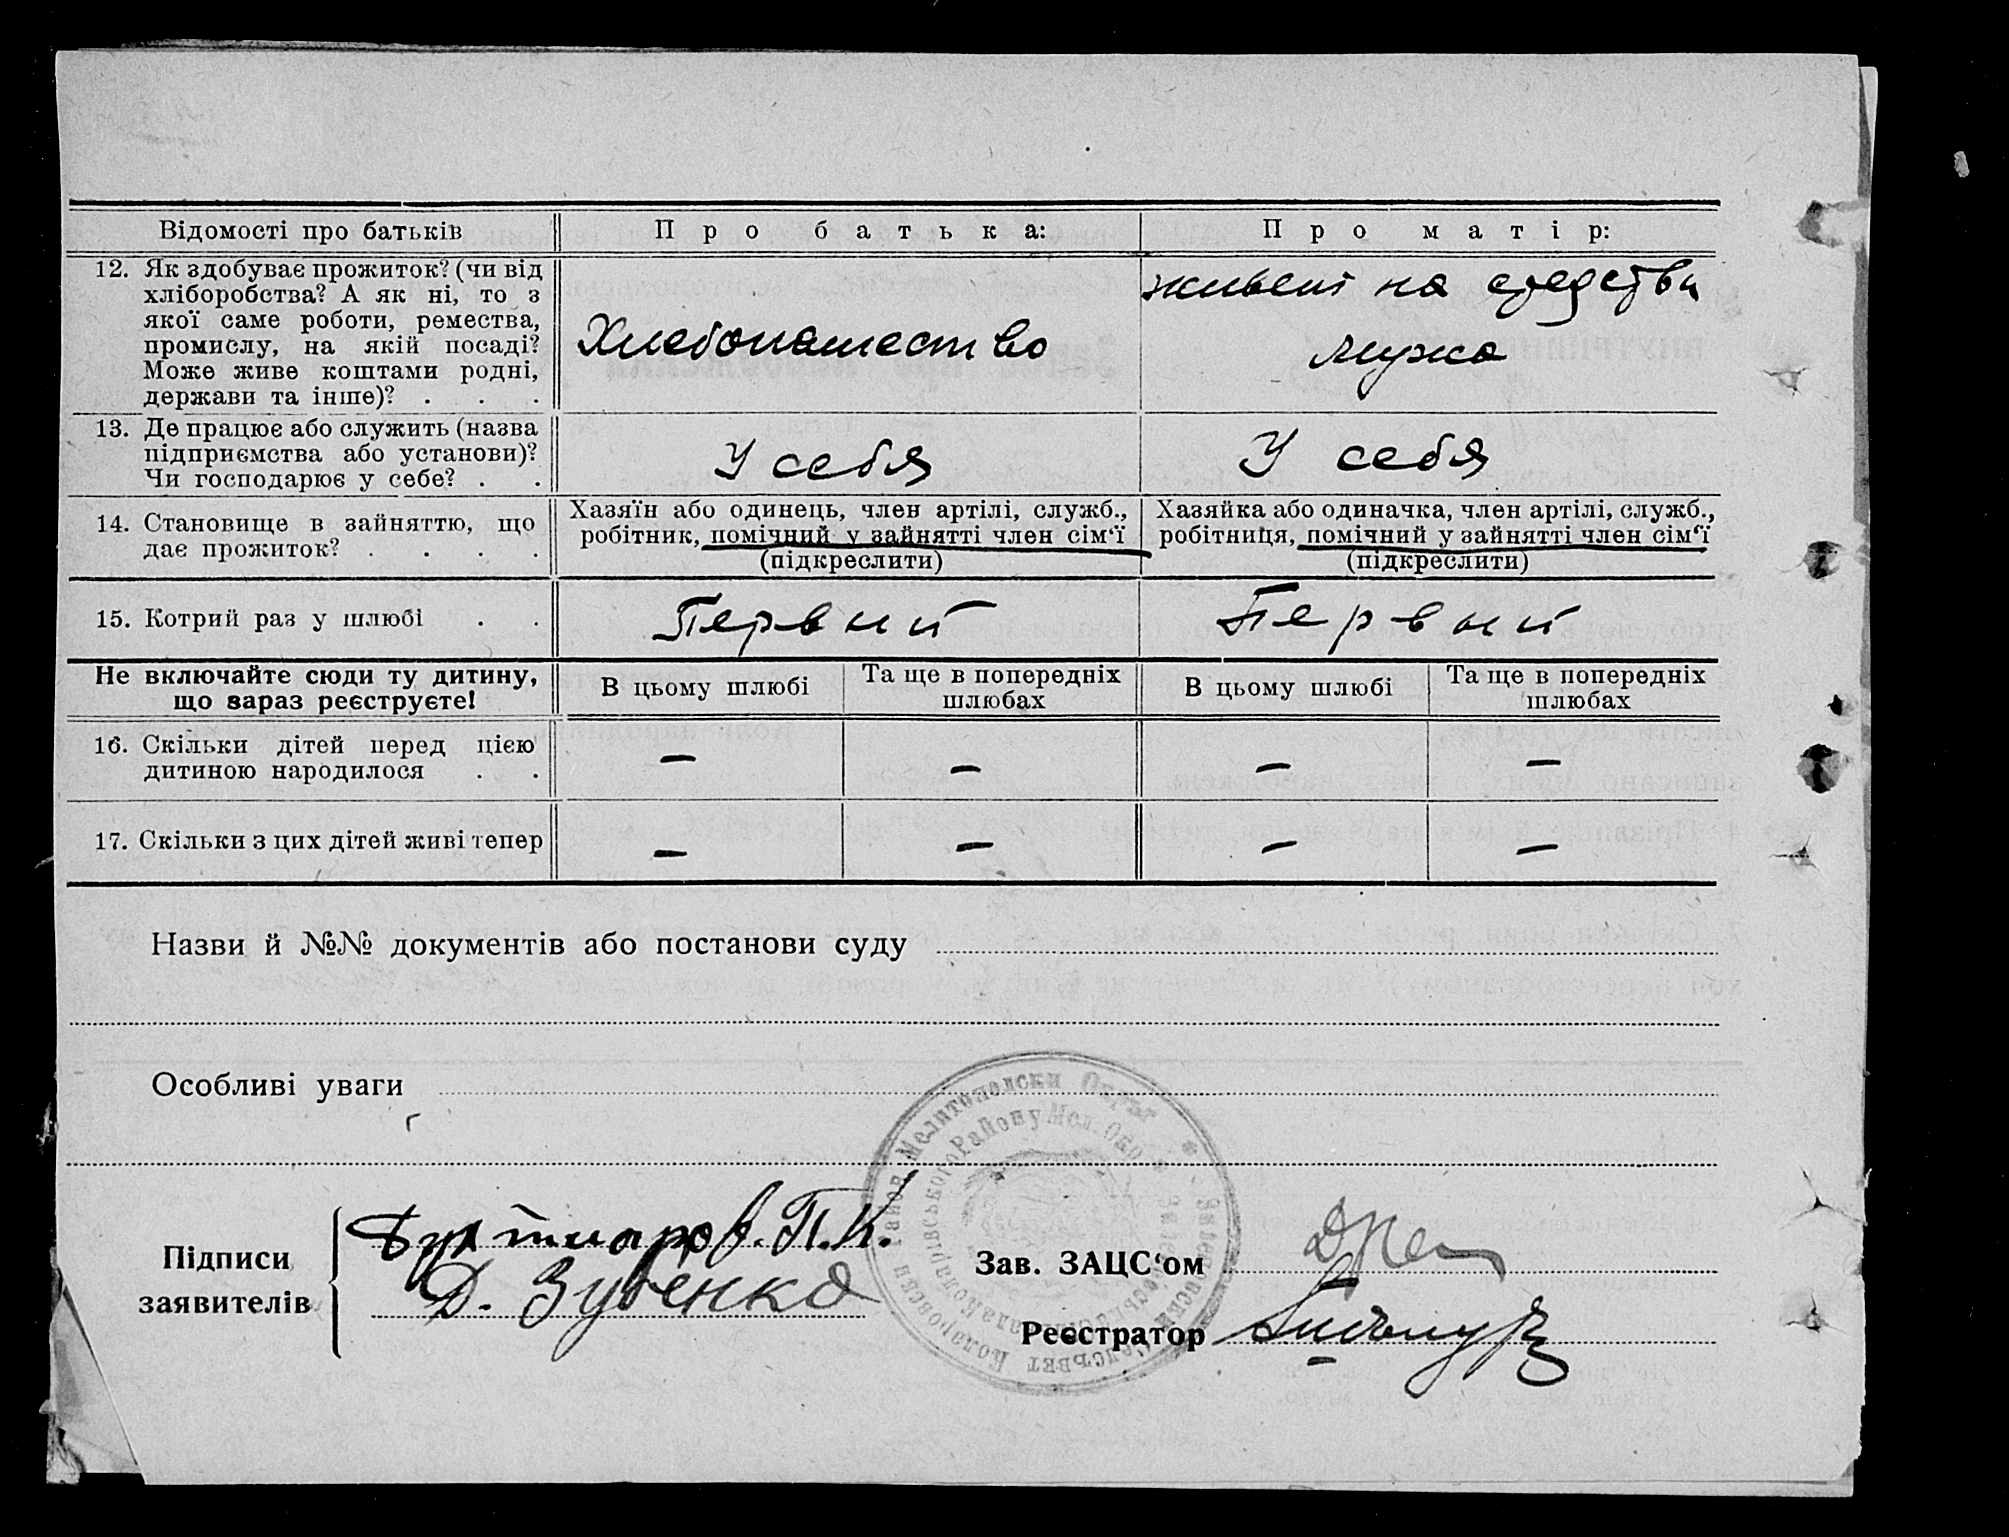 Відомості про батьків
Про батька:
Про матір:
12. Як здобуває прожиток? (чи від
хліборобства? А як ні, то з
якої саме роботи, ремества,
промислу, на якій посаді?
Може живе коштами родні,
держави та інше)? . . .
Хлебопашество
живет на средства
мужа
13. Де працює або служить (назва
підприємства або установи)?
Чи господарює у себе? . .
У себя
У себя
14. Становище в зайняттю, що
дає прожиток? . . . .
Хазяїн або одинець, член артілі, служб.,
робітник, помічний у зайнятті член сім‘ї
(підкреслити)
Хазяйка або одиначка, член артілі, служб.,
робітниця, помічний у зайнятті член сім‘ї
(підкреслити)
15. Котрий раз у шлюбі . .
Первий
Первий
Не включайте сюди ту дитину,
що зараз реєструєте!
В цьому шлюбі
Та ще в попередніх
шлюбах
В цьому шлюбі
Та ще в попередніх
шлюбах
16. Скільки дітей перед цією
дитиною народилося . .
— — — —
17. Скільки з цих дітей живі тепер
— — — —
Назви й №№ документів або постанови суду
Особливі уваги
Підписи
заявителів
П.К.
Д. Зубенко
Зав. ЗАЦС‘ом
Реєстратор